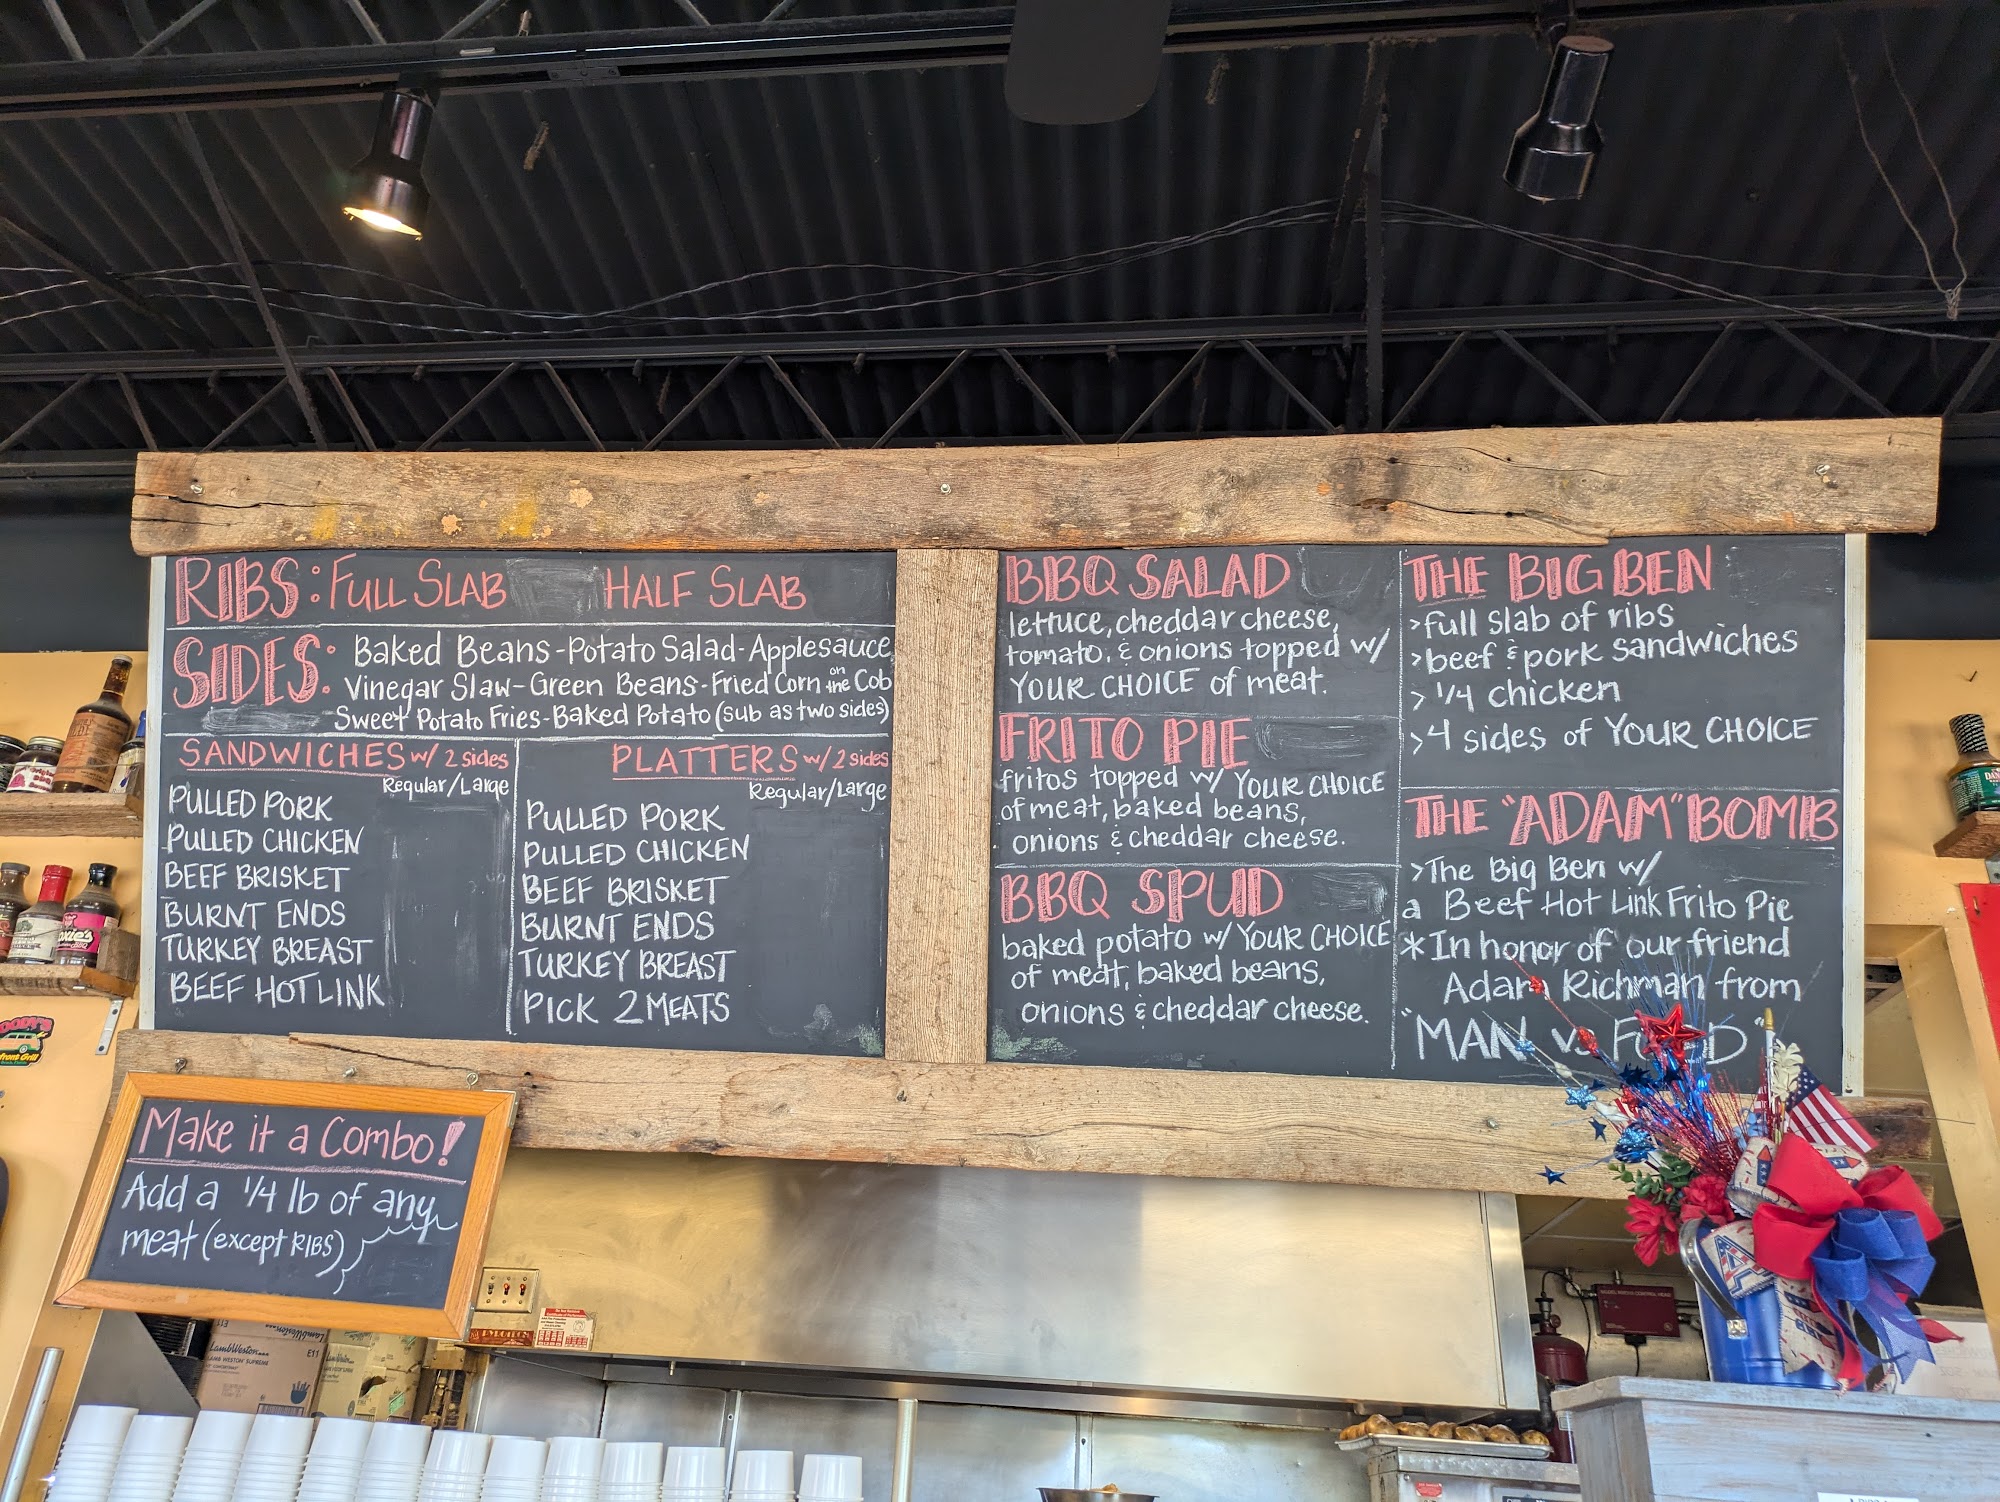 RIBS: FULL SLAB HALF SLAB
SIDES: Baked Beans-Potato Salad-Applesauce
Vinegar Slaw-Green Beans-Fried Corn on the Cob
Sweet Potato Fries-Baked Potato (sub as two sides)
SANDWICHES w/ 2 sides
Regular/Large
PULLED PORK
PULLED CHICKEN
BEEF BRISKET
BURNT ENDS
TURKEY BREAST
BEEF HOT LINK
PLATTERS w/ 2 sides
Regular/Large
PULLED PORK
PULLED CHICKEN
BEEF BRISKET
BURNT ENDS
TURKEY BREAST
PICK 2 MEATS
BBQ SALAD
lettuce, cheddar cheese,
tomato, & onions topped w/
YOUR CHOICE of meat.
FRITO PIE
fritos topped w/ YOUR CHOICE
of meat, baked beans,
onions & cheddar cheese.
BBQ SPUD
baked potato w/ YOUR CHOICE
of meat, baked beans,
onions & cheddar cheese.
THE BIG BEN
>full slab of ribs
>beef & pork sandwiches
> 1/4 chicken
>4 sides of YOUR CHOICE
THE "ADAM" BOMB
>The Big Ben w/
a Beef Hot Link Frito Pie
*In honor of our friend
Adam Richman from
"MAN vs FOOD"
Make it a Combo!
Add a 1/4 lb of any
meat (except RIBS)
LambWeston
LAMB WESTON SUPREME
E11